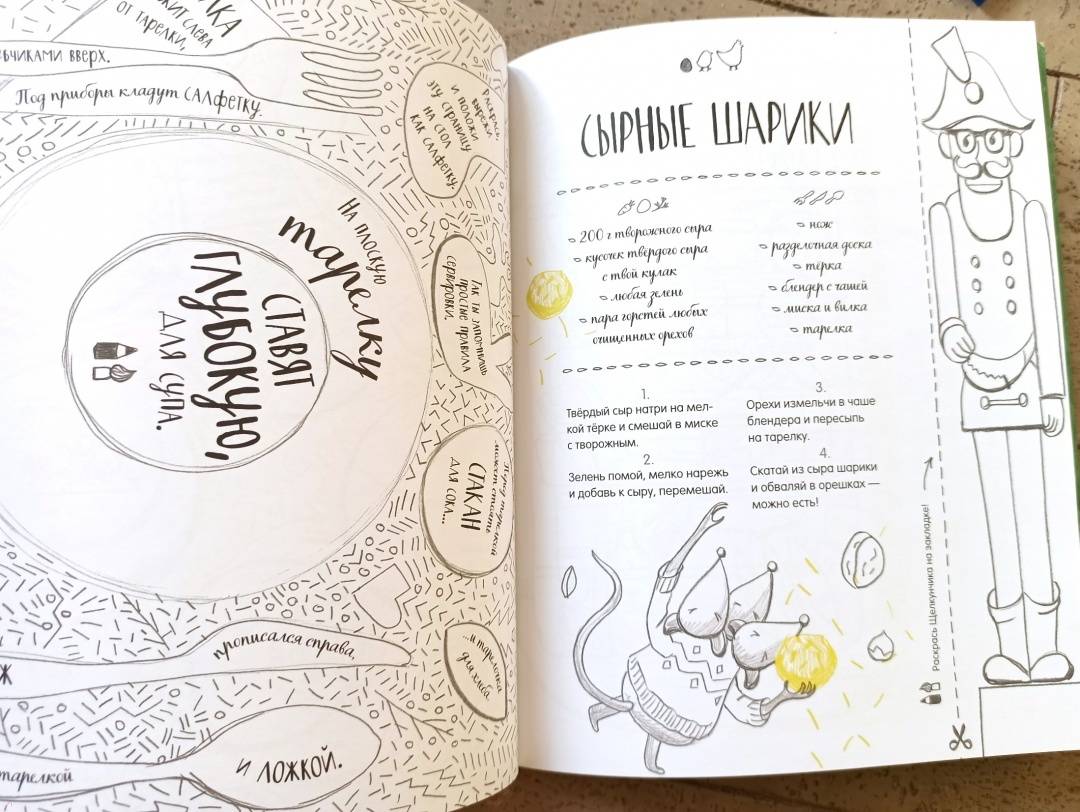 ЛКА
ЖИТ СЛЕВА
ОТ ТАРЕЛКИ,
ЬЧИКАМИ ВВЕРХ.
Под приборы кладут САЛФЕТКУ.
Раскрась,
вырежи
и положи
эту страницу
на стол
как салфетку.
На плоскую
тарелку
СТАВЯТ
ГЛУБОКУЮ,
ДЛЯ СУПА.
Так ты запомнишь
простые правила
сервировки.
Перед тарелкой
может стоять
СТАКАН
ДЛЯ СОКА...
...и тарелка
для хлеба.
Ж
прописался справа,
тарелкой
И ЛОЖКОЙ.
СЫРНЫЕ ШАРИКИ
200 г творожного сыра
кусочек твёрдого сыра
с твой кулак
любая зелень
пара горстей любых
очищенных орехов
нож
разделочная доска
тёрка
блендер с чашей
миска и вилка
тарелка
1.
Твёрдый сыр натри на мел-
кой тёрке и смешай в миске
с творожным.
2.
Зелень помой, мелко нарежь
и добавь к сыру, перемешай.
3.
Орехи измельчи в чаше
блендера и пересыпь
на тарелку.
4.
Скатай из сыра шарики
и обваляй в орешках —
можно есть!
Раскрась Щелкунчика на закладке!